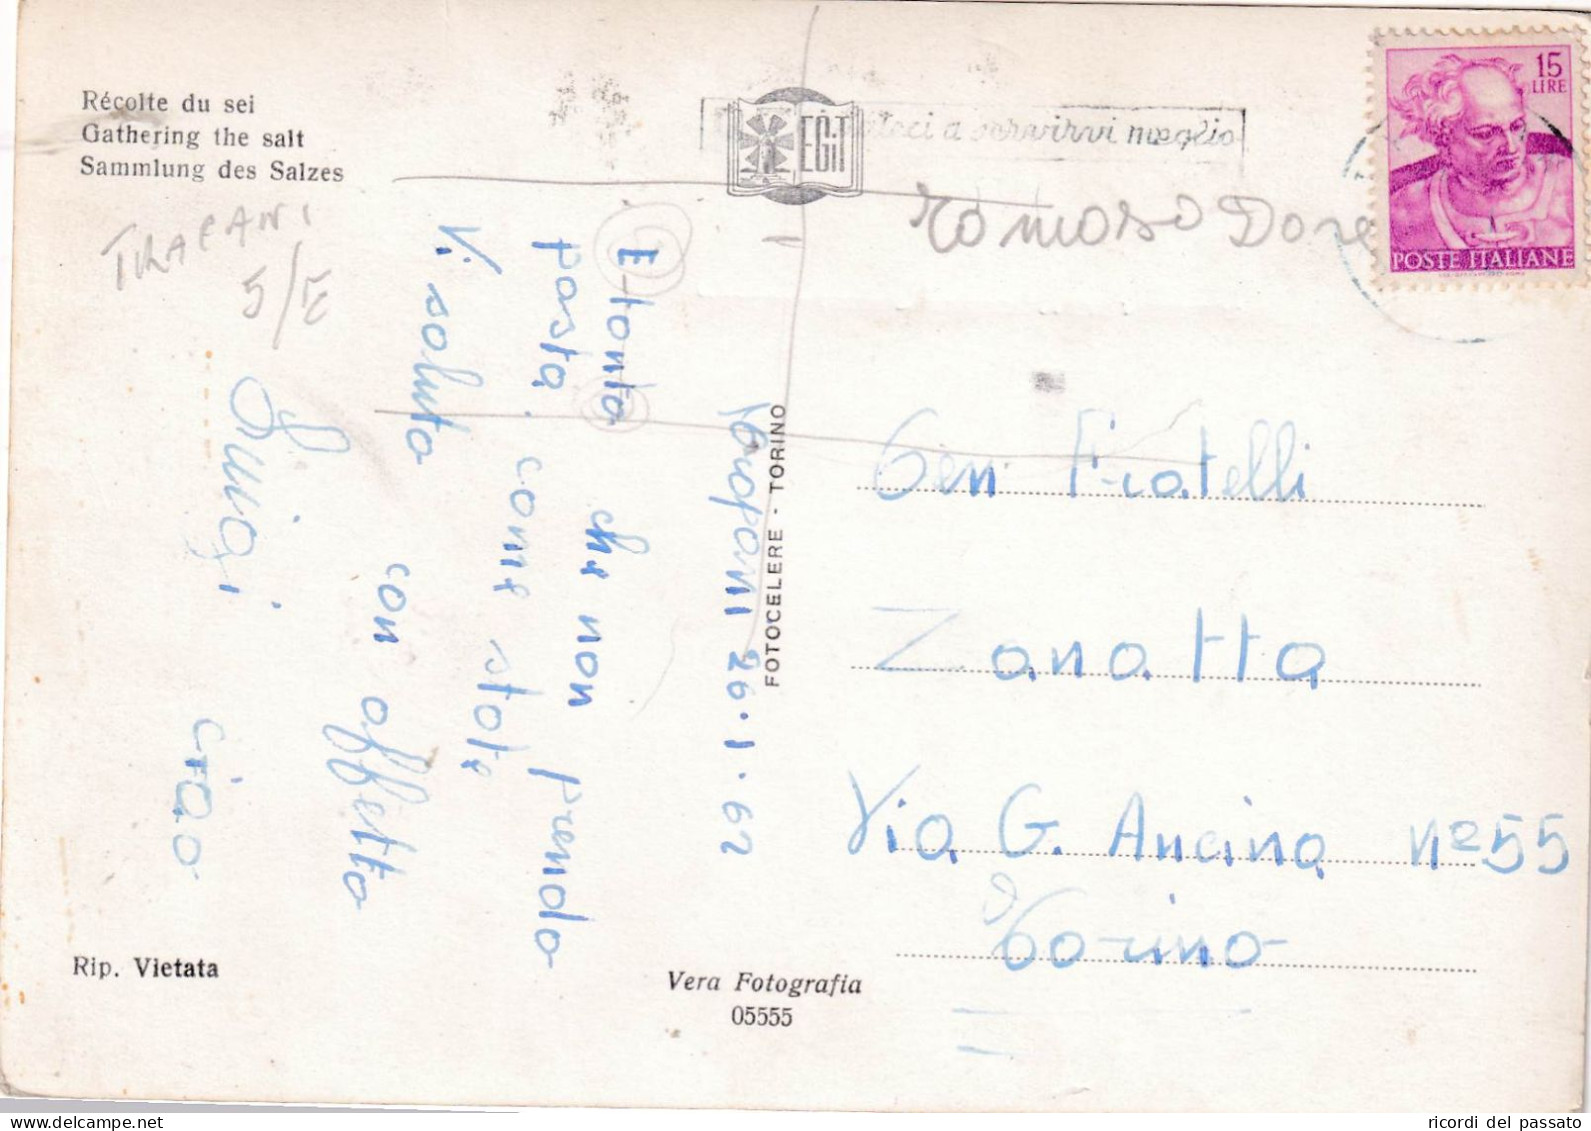 Récolte du sei
Gathering the salt
Sammlung des Salzes
TRAPANI
5/E
E tanto che non prendo
posta. come state
Vi saluto con affetto
Luigi ciao
Trapani 26.1.62
FOTOCELERE - TORINO
E.G.I.T
a servirvi meglio
15
LIRE
POSTE ITALIANE
Gen Fratelli
Zanatta
Via G. Ancina nº 55
Torino
Rip. Vietata
Vera Fotografia
05555
ricordi del passato